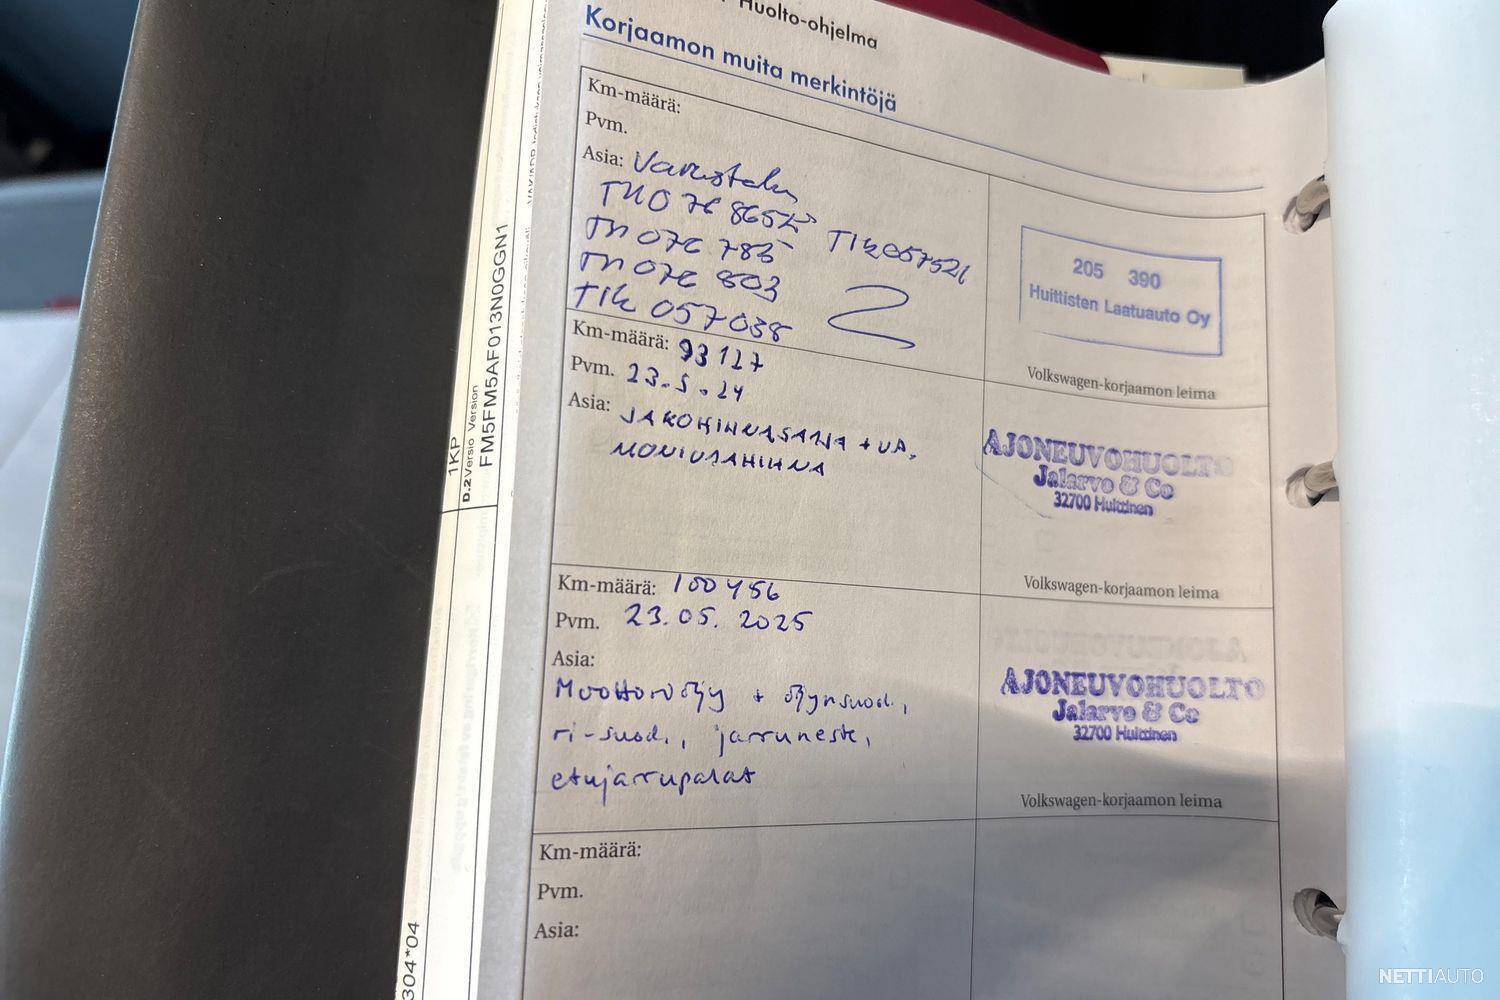 Huolto-ohjelma
Korjaamon muita merkintöjä
Km-määrä:
Pvm.
Asia: Varustelu
205 390
Huittisten Laatuauto Oy
Volkswagen-korjaamon leima
TIK 057038
Km-määrä: 93127
Pvm. 23.5.24
Asia: JAKOHIHNASARJA + VP,
MONIURAHIHNA
AJONEUVOHUOLTO
Jalarvo & Co
32700 Huittinen
Volkswagen-korjaamon leima
Km-määrä: 100456
Pvm. 23.05.2025
Asia:
Moottoriöljy + öljynsuod.,
ri-suod., jarruneste,
etujarrupalat
AJONEUVOHUOLTO
Jalarvo & Co
32700 Huittinen
Volkswagen-korjaamon leima
Km-määrä:
Pvm.
Asia:
1KP
D.2 Versio Version
FM5FM5AF013N0GGN1
304*04
NETTIAUTO